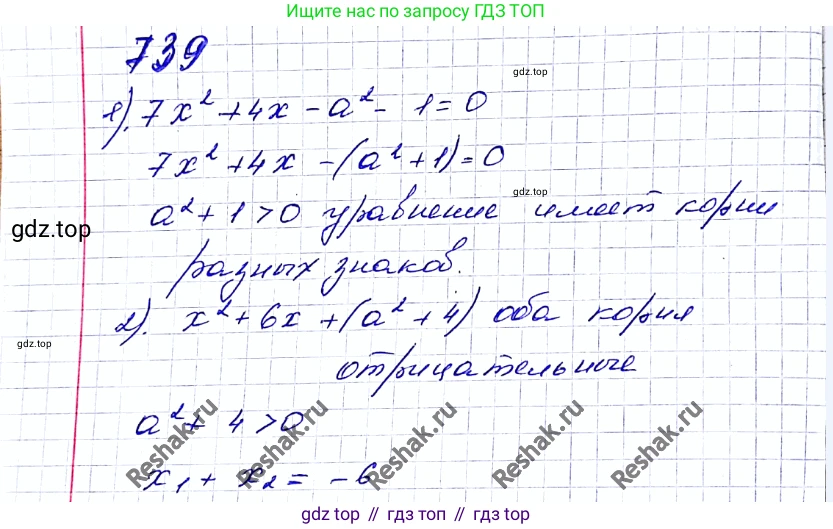 Ищите нас по запросу ГДЗ ТОП
739
gdz.top
1). 7x² + 4x - a² - 1 = 0
7x² + 4x - (a² + 1) = 0
gdz.top
a² + 1 > 0 уравнение имеет корни
gdz.top
разных знаков.
2). x² + 6x + (a² + 4) оба корня
gdz.top
отрицательные
a² + 4 > 0
Reshak.ru Reshak.ru Reshak.ru Reshak.ru Reshak.ru
x₁ + x₂ = -6
gdz top // гдз топ // gdz top